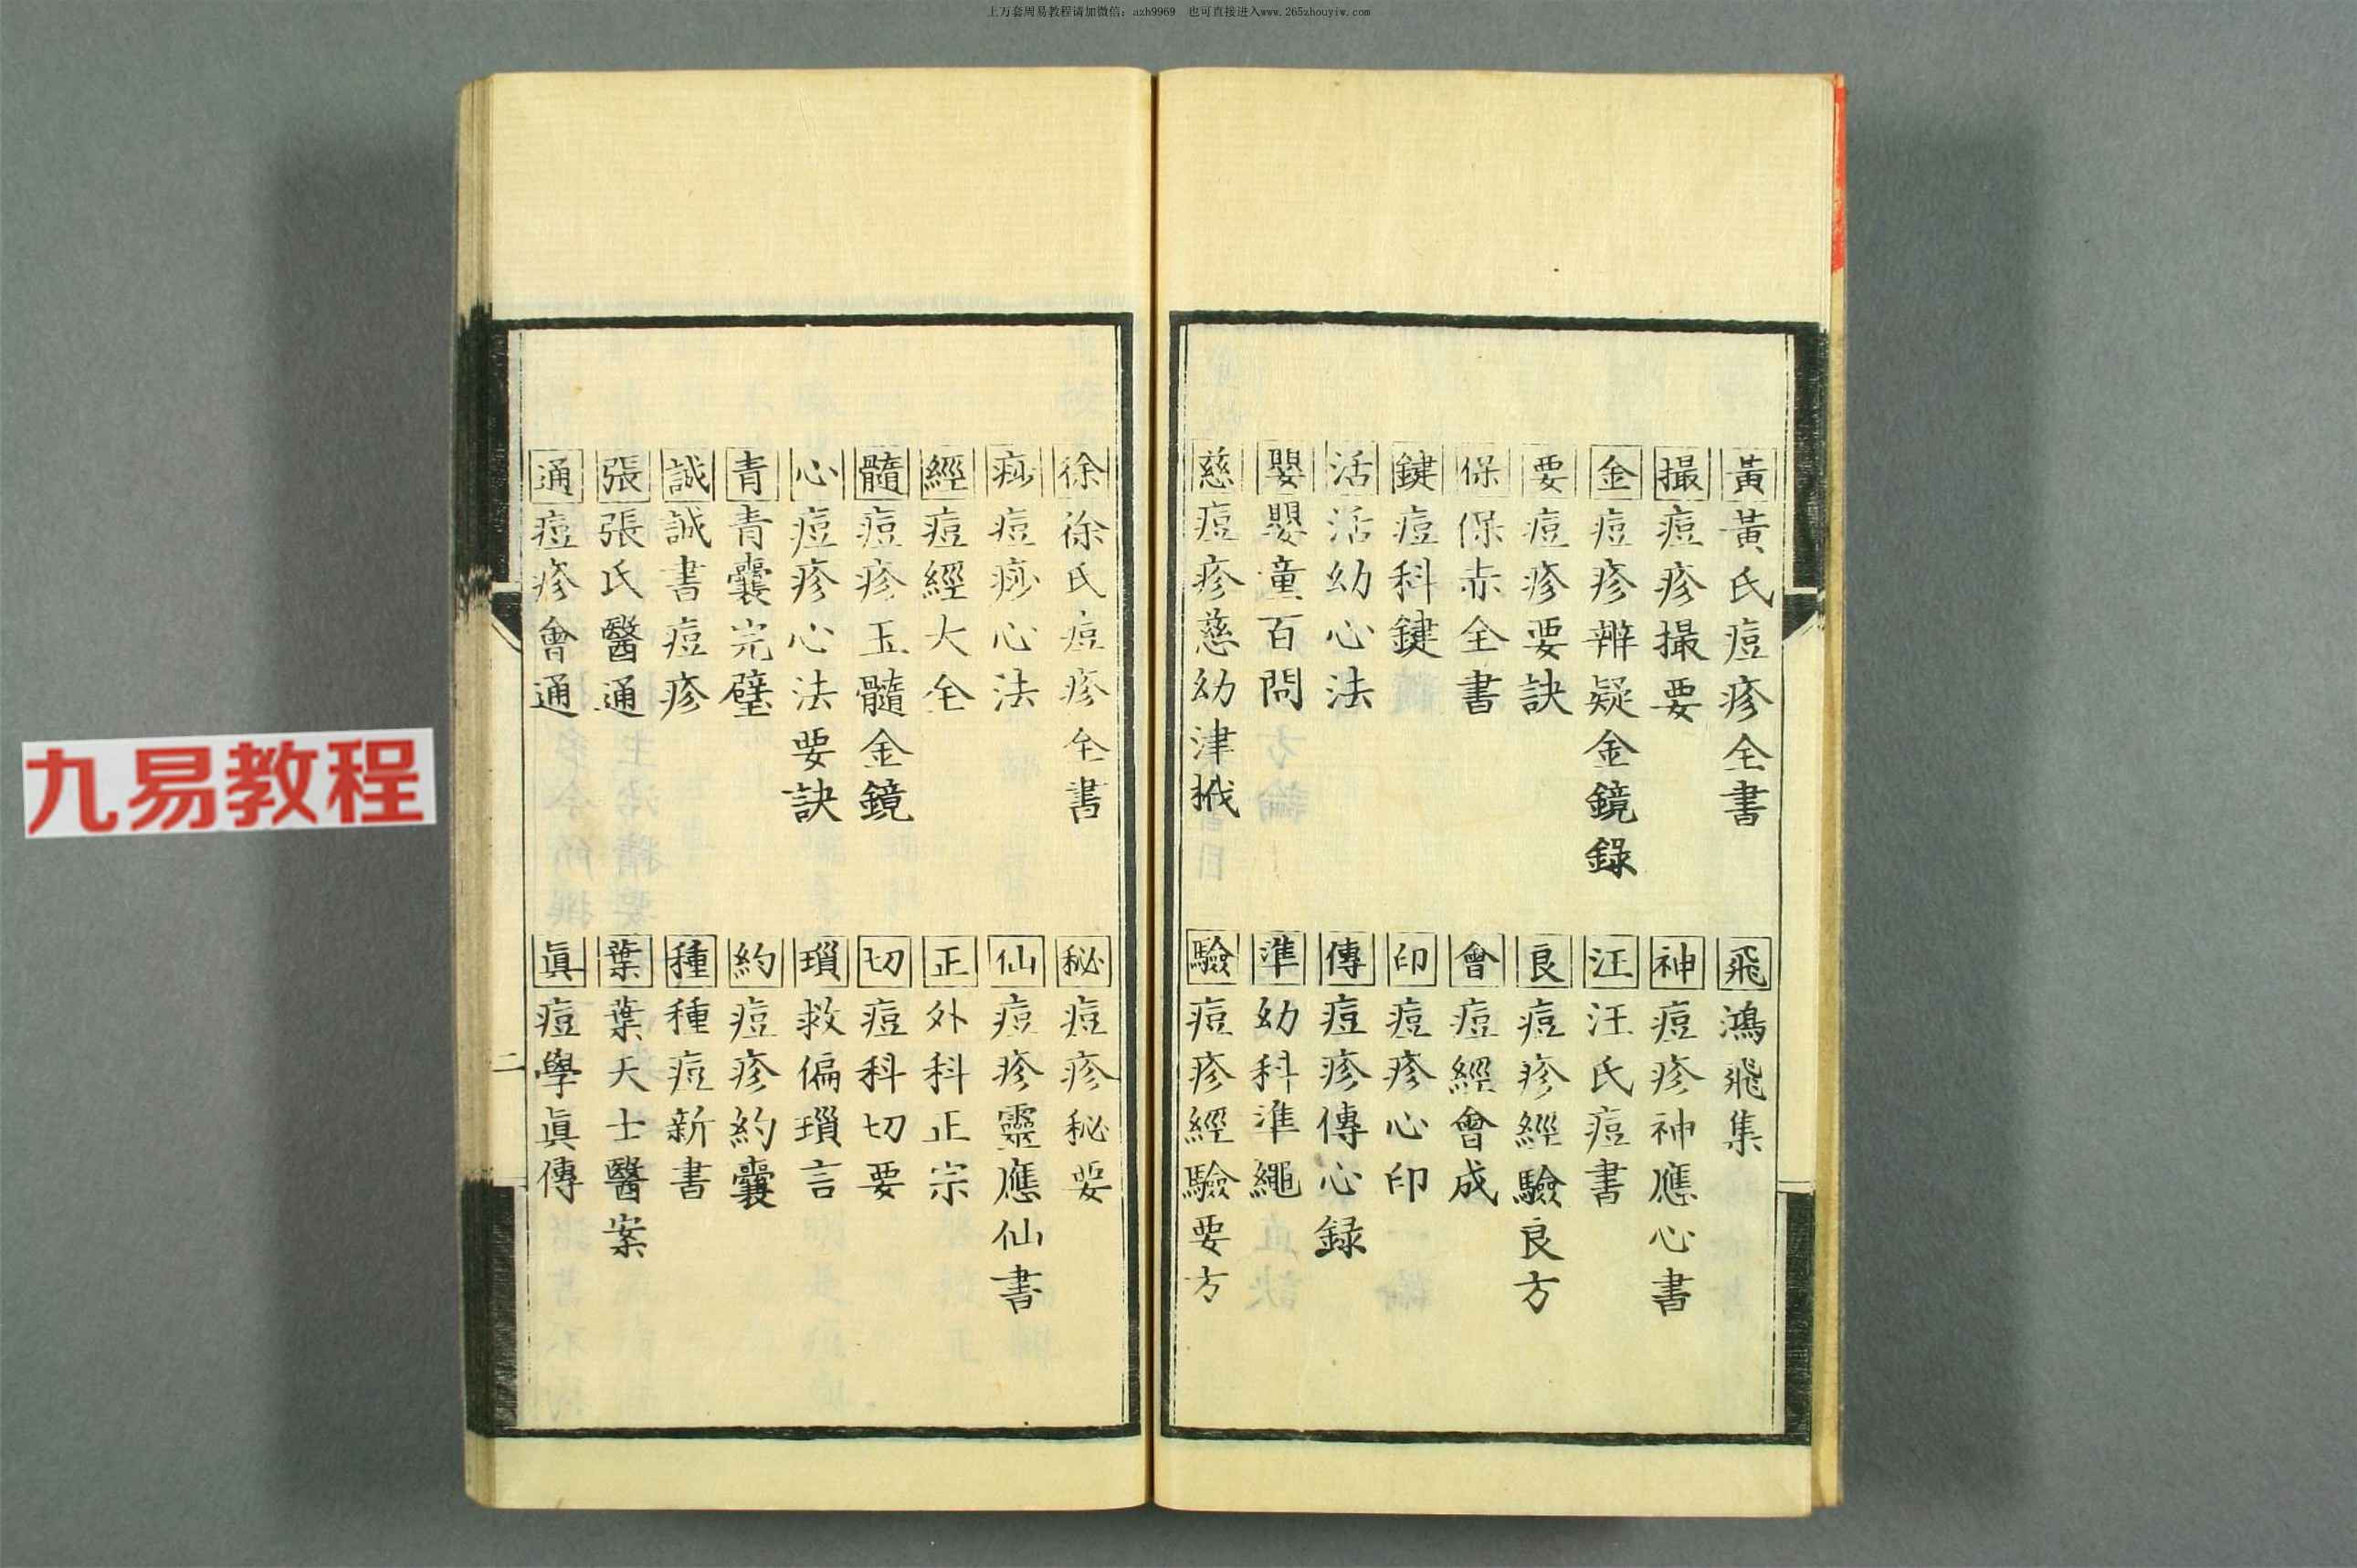 上万套周易教程请加微信：azh9969　也可直接进入www.265zhouyiw.com
黃黃氏痘疹全書
飛鴻飛集
撮痘疹撮要
神痘疹神應心書
金痘疹辨疑金鏡錄
汪汪氏痘書
要痘疹要訣
良痘疹經驗良方
保保赤全書
會痘經會成
鍵痘科鍵
印痘疹心印
活活幼心法
傳痘疹傳心録
嬰嬰童百問
準幼科準繩
慈痘疹慈幼津筏
驗痘疹經驗要方
徐徐氏痘疹全書
秘痘疹秘要
痧痘痧心法
仙痘疹靈應仙書
經痘經大全
正外科正宗
髓痘疹玉髓金鏡
切痘科切要
心痘疹心法要訣
瑣救偏瑣言
青青囊完璧
約痘疹約囊
誠誠書痘疹
種種痘新書
張張氏醫通
葉葉天士醫案
通痘疹會通
眞痘學眞傳
二
九易教程